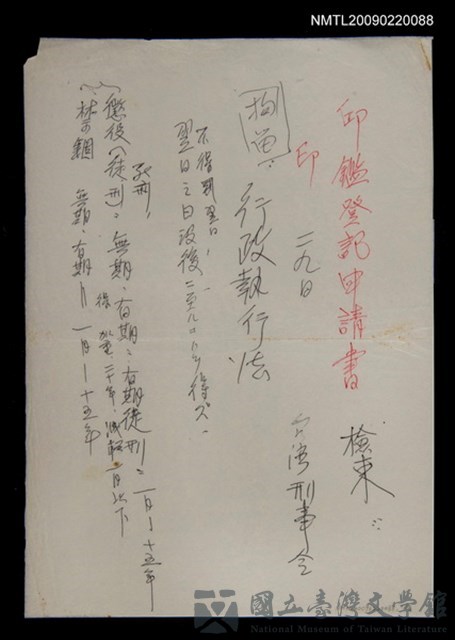 NMTL20090220088
印鑑登記申請書
檢束
印
二九日
台湾刑事令
拘留
行政執行法
不得到翌日、
翌日之日没後
死刑、
懲役(徒刑)。無期、有期、有期徒刑、一月〜十五年
二十年、減輕一月以下
禁錮 無期、有期 一月〜十五年
國立臺灣文學館
National Museum of Taiwan Literature